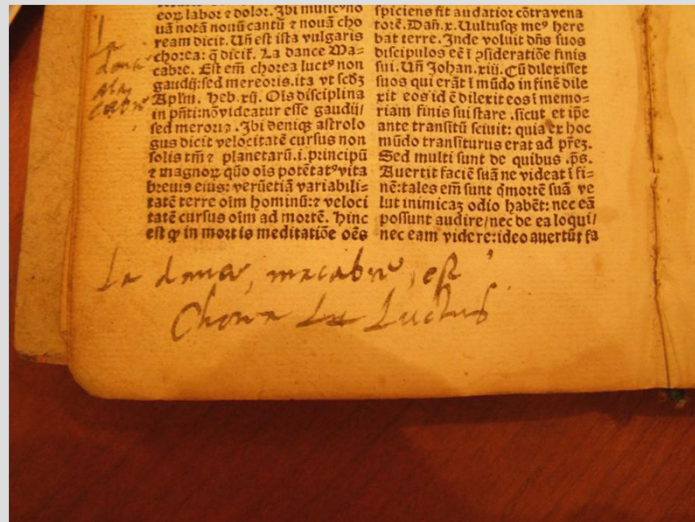 La
danc
Mac
cabre
eoꝝ labor ⁊ dolor. Ibi musicꝰno
uā notā nouū cantū ⁊ nouā cho
ream dicit. Un̄ est ista vulgaris
chorea: q̄ dicit̄. La dance Ma-
cabre. Est em̄ chorea luctꝰ non
gaudij: sed meroris. ita vt scḋʒ
Aplm̄. Heb. xij. Oīs disciplina
in pn̄ti: nō videatur esse gaudij/
sed meroris. Ibi deniqʒ astrolo
gus dicit velocitatē cursus non
solis tm̄ ⁊ planetarū. i. principū
⁊ magnoꝝ quō oīs potētatꝰ vita
breuis eius: verūetiā variabili-
tatē terre oīm hominū: ⁊ veloci
tatē cursus oīm ad mortē. Hinc
est ꝙ in mortis meditatiōe oēs
spiciens fit audatior cōtra vena
torē. Dañ. x. Uultusqʒ meꝰ here
bat terre. Inde voluit dn̄s suos
discipulos eē ī ꝯsideratiōe finis
sui. Un̄ Johan. xiii. Cū dilexisset
suos qui erāt ī mūdo in finē dile
xit eos id ē dilexit eos ī memo-
riam finis sui stare. sicut et ip̄e
ante transitū sciuit: quia ex hoc
mūdo transiturus erat ad pr̄eʒ.
Sed multi sunt de quibus .p̄s.
Auertit faciē suā ne videat ī fi-
nē: tales em̄ sunt q̄ mortē suā ve
lut inimicaʒ odio habēt: nec eā
possunt audire/ nec de ea loqui/
nec eam videre: ideo auertūt fa
La danc, macabre, est
Chorea Luctus